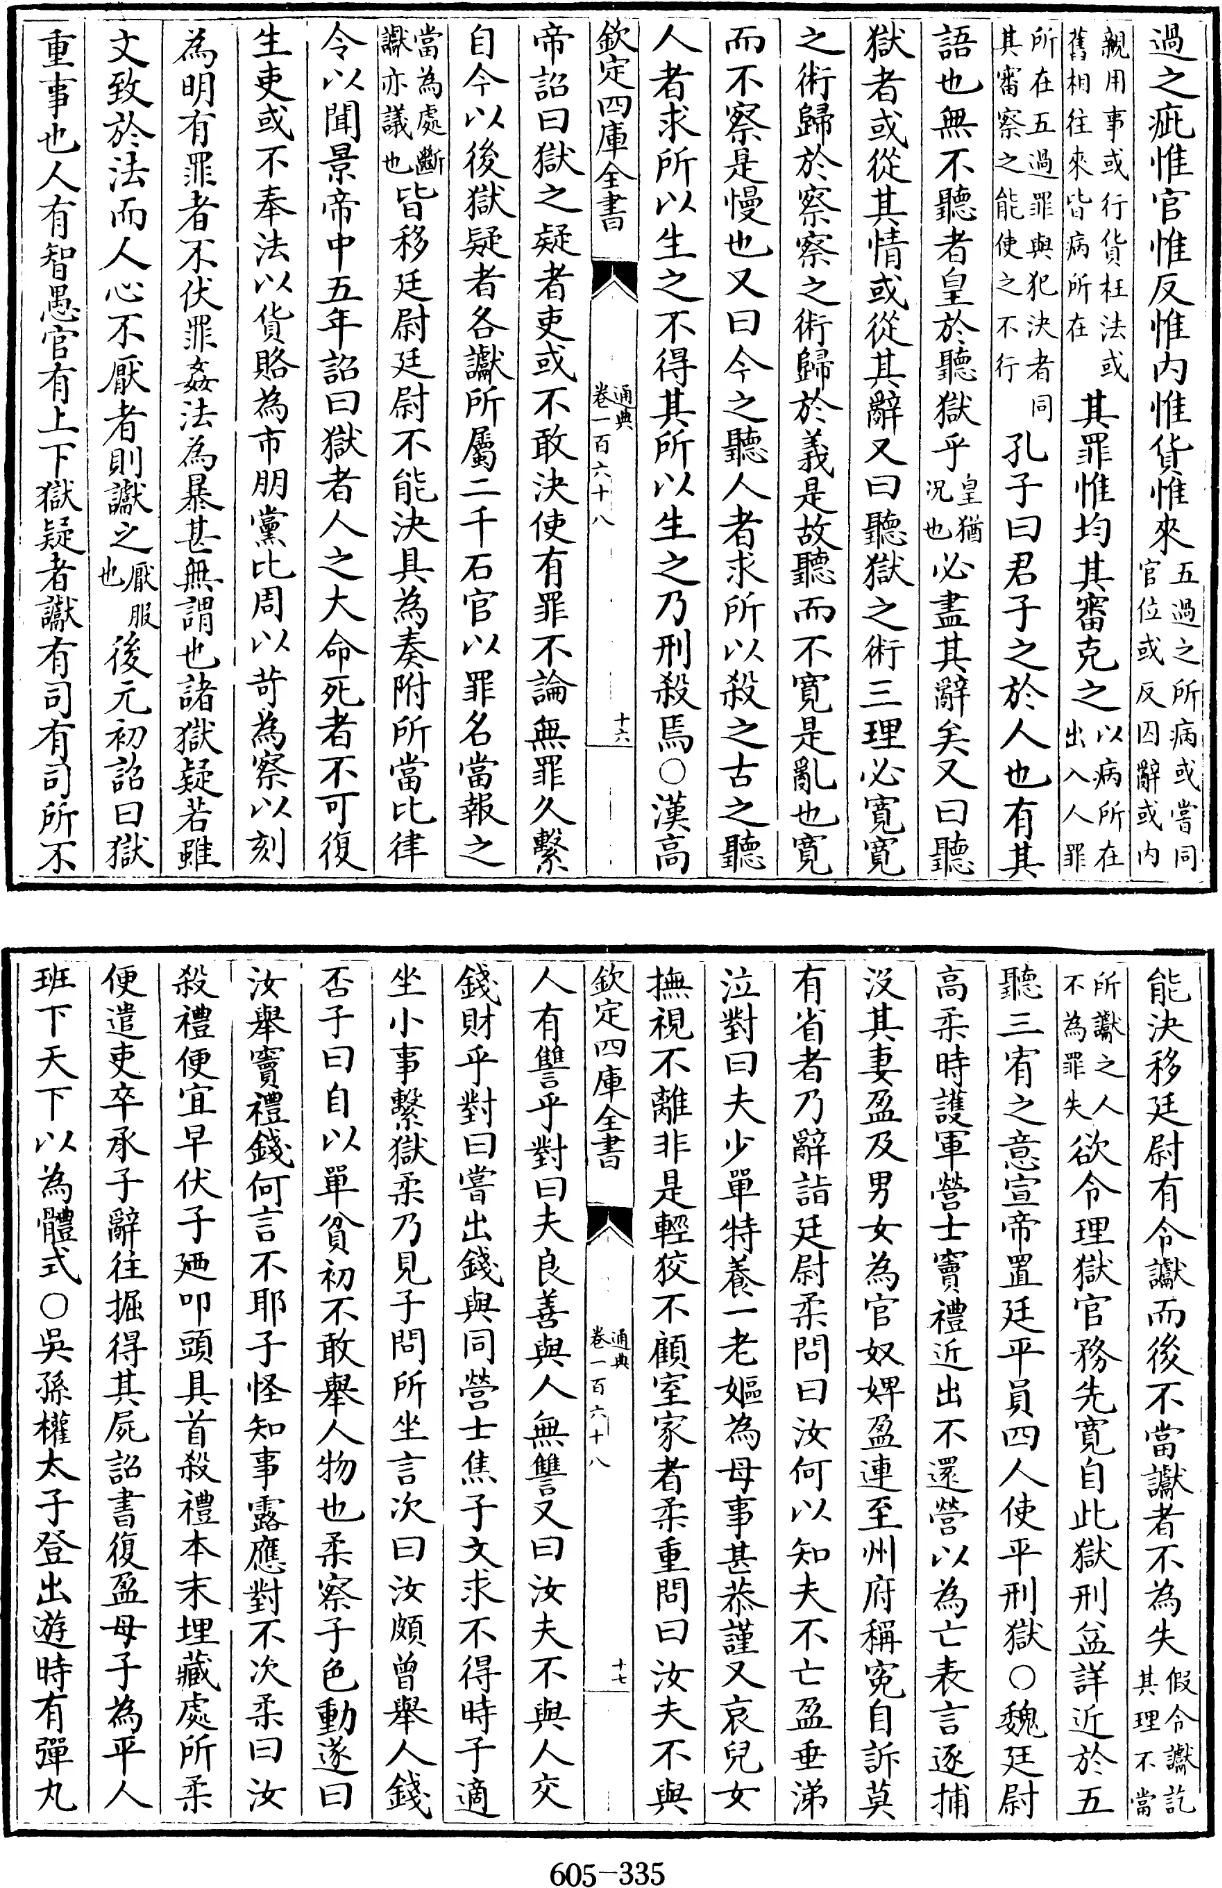 過之疵惟官惟反惟内惟貨惟來五過之所病或嘗同官位或反囚辭或内
親用事或行貨枉法或舊相往來皆病所在其罪惟均其審克之以病所在出入人罪
所在五過罪與犯決者同其審察之能使之不行孔子曰君子之於人也有其
語也無不聽者皇於聽獄乎皇猶况也必盡其辭矣又曰聽
獄者或從其情或從其辭又曰聽獄之術三理必寛寛
之術歸於察察之術歸於義是故聽而不寛是亂也寛
而不察是慢也又曰今之聽人者求所以殺之古之聽
人者求所以生之不得其所以生之乃刑殺焉○漢高
欽定四庫全書
通典
卷一百六十八
十六
帝詔曰獄之疑者吏或不敢決使有罪不論無罪久繫
自今以後獄疑者各讞所屬二千石官以罪名當報之
當為處斷讞亦議也皆移廷尉廷尉不能決具為奏附所當比律
令以聞景帝中五年詔曰獄者人之大命死者不可復
生吏或不奉法以貨賂為市朋黨比周以苛為察以刻
為明有罪者不伏罪姦法為暴甚無謂也諸獄疑若雖
文致於法而人心不厭者則讞之厭服也後元初詔曰獄
重事也人有智愚官有上下獄疑者讞有司有司所不
能決移廷尉有令讞而後不當讞者不為失假令讞訖其理不當
所讞之人不為罪失欲令理獄官務先寛自此獄刑益詳近於五
聽三宥之意宣帝置廷平員四人使平刑獄○魏廷尉
高柔時護軍營士竇禮近出不還營以為亡表言逐捕
沒其妻盈及男女為官奴婢盈連至州府稱寃自訴莫
有省者乃辭詣廷尉柔問曰汝何以知夫不亡盈垂涕
泣對曰夫少單特養一老嫗為母事甚恭謹又哀兒女
撫視不離非是輕狡不顧室家者柔重問曰汝夫不與
欽定四庫全書
通典
卷一百六十八
十七
人有讐乎對曰夫良善與人無讐又曰汝夫不與人交
錢財乎對曰嘗出錢與同營士焦子文求不得時子適
坐小事繫獄柔乃見子問所坐言次曰汝頗曾舉人錢
否子曰自以單貧初不敢舉人物也柔察子色動遂曰
汝舉竇禮錢何言不耶子怪知事露應對不次柔曰汝
殺禮便宜早伏子廼叩頭具首殺禮本末埋藏處所柔
便遣吏卒承子辭往掘得其屍詔書復盈母子為平人
班下天下以為體式○吳孫權太子登出遊時有彈丸
605-335